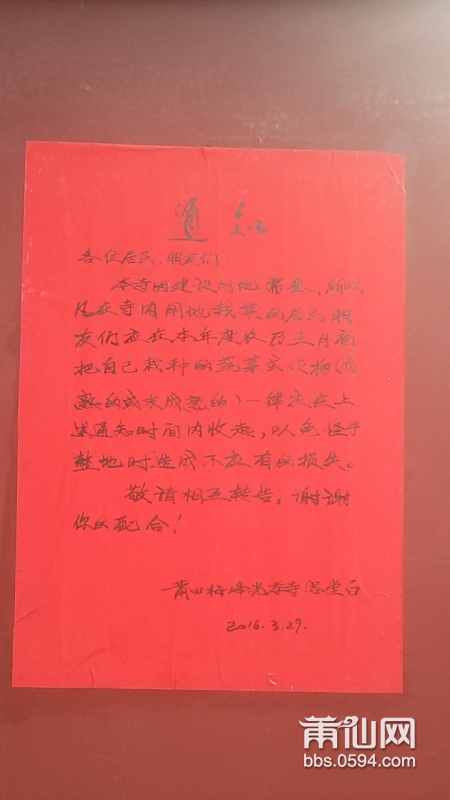 通知
各位居民、朋友们:
本寺因建设用地需要,所以
凡在寺内用地栽菜的居民朋
友们应在本年度农历三月底
把自己栽种的蔬菜农作物(成
熟的或未成熟的)一律应在上
述通知时间内收起,以免怪手
整地时造成不应有的损失。
敬请相互转告,谢谢
你的配合!
莆田梅峰光孝寺 客堂白
2016.3.29.
莆仙网
bbs.0594.com